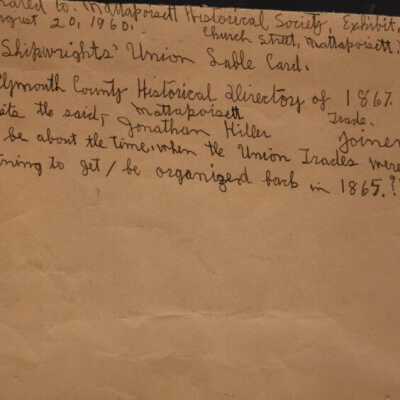 to: Mattapoisett Historical Society, Exhibit,
August 20, 1960. Church Street, Mattapoisett.
Shipwrights' Union Lable Card.
Plymouth County Historical Directory of 1867.
the said, Mattapoisett Trade.
Jonathan Hiller Joiner
be about the time, when the Union Trades were
to get / be organized back in 1865.?